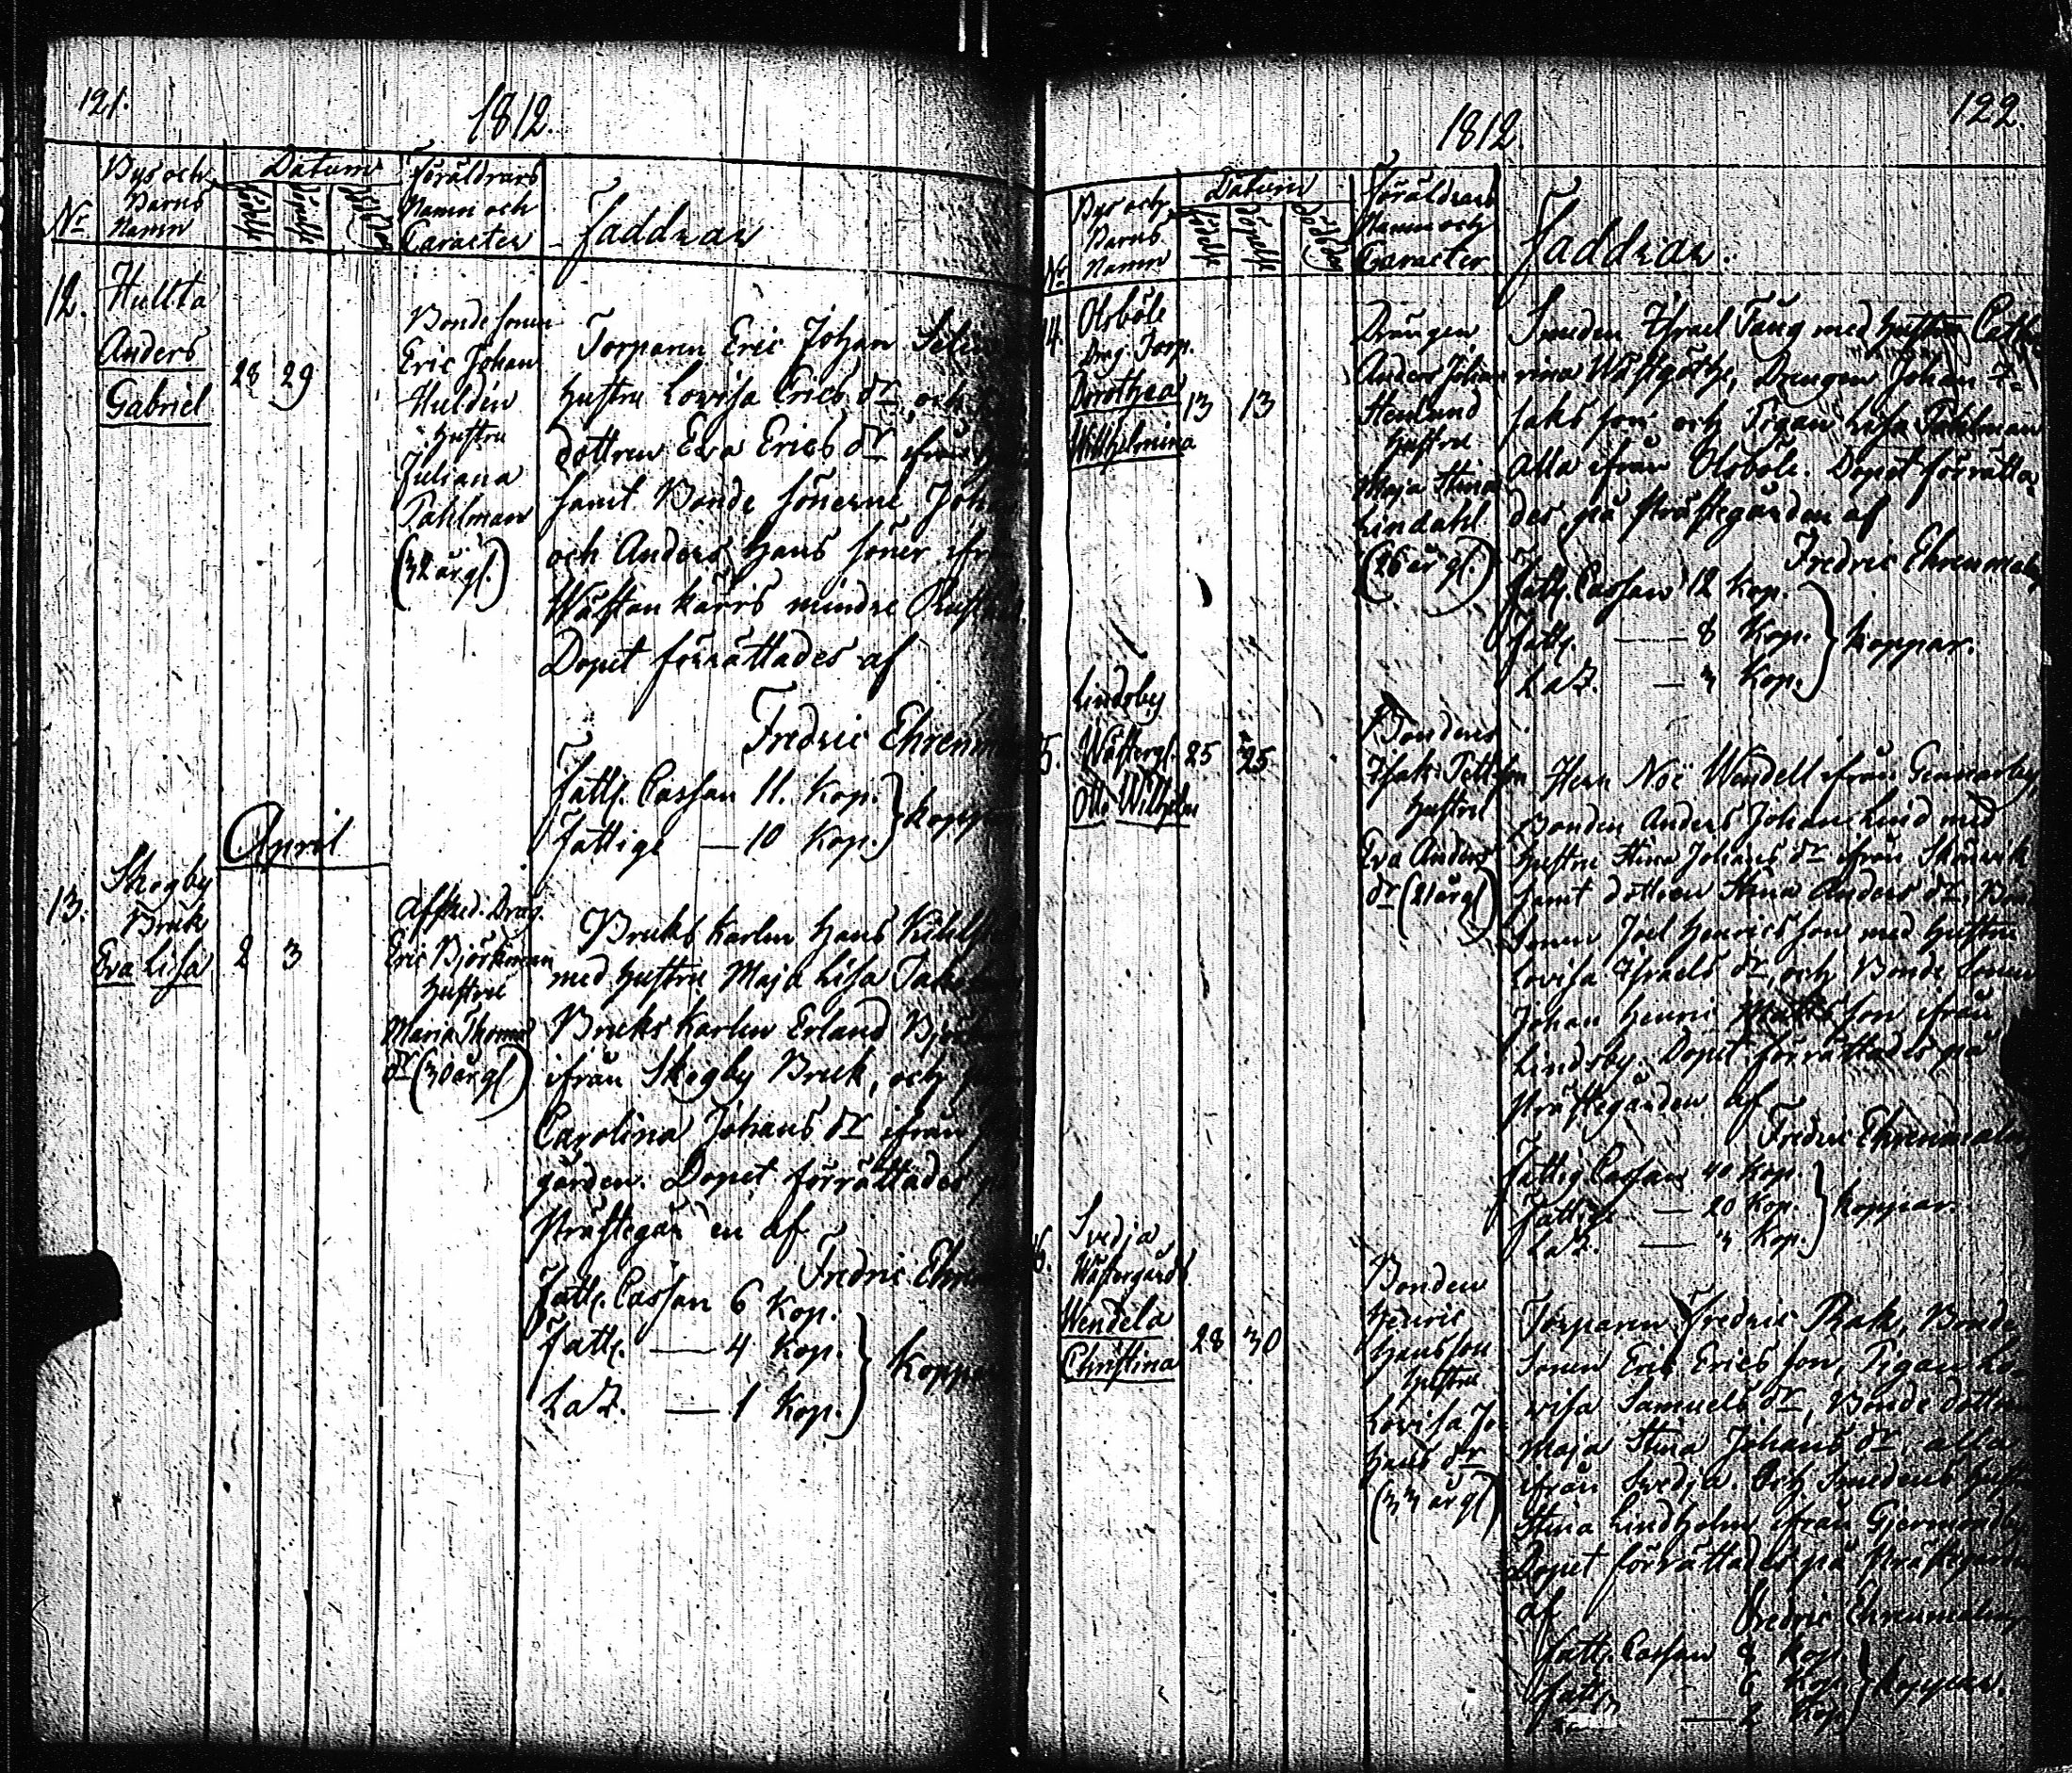 121.
1812.
Nr
Bys och
Barns
Namn
Datum
födelse
döpelse
Föräldrars
Namn och
Caracter
Faddrar
12.
Hullta
Anders
Gabriel
28 29
Bonde sonen
Eric Johan
Huldin
Hustru
Juliana
Pahlman
(32 år gl.)
Torparen Eric Johan
Hustru Lovisa Erics dr, och
dottren Eva Erics dr ifrån
samt Bonde sönerne Joh
och Anders Hans söner ifr
Wästankärrs mindre Rust
Dopet förrättades af
Fredric Ehrenm
Fattl. Cassan 11. Kop.
Fattige — 10 Kop. } Kopp
April
13.
Skogby
Bruk
Eva Lisa
2 3
Afsked. Drag.
Eric Björkman
Hustru
Maria Thomas
dr (30 år gl)
Bruks Karlen Hans
med Hustru Maja Lisa
Bruks Karlen Erland Björ
ifrån Skogby Bruk, och
Carolina Johans dr ifrån
gården. Dopet förrättades
Prästegår en af
Fredric Ehre
Fattl. Cassan 6 Kop.
Fattl. — 4 Kop.
LaZ. — 1 Kop. } Koppa
122.
1812.
Nr
Bys och
Barns
Namn
Datum
födelse
döpelse
Föräldrars
Namn och
Caracter
Faddrar.
4.
Olsböle
Drag. Torp.
Dorothea
Willhelmina
13 13
Drängen
Anders Johan
Stenlund
Hustru
Maja Stina
Lindahl
(26 år gl.)
Smeden Israel Faug med Hustru Cath
rina Wästgöthe, Drängen Johan I-
saks son och Pigan Lisa Pahlman
Alla ifrån Olsböle. Dopet förrätta-
des på Prästegården af
Fredric Ehrenmalm
Fattl. Cassan 12 Kop.
Fattl. — 8 Kop. } Koppar.
LaZ. — 3 Kop.
5.
Lindsby
Wästergl.
Otto Wilhelm
25 25
Bondens
Isak
Hustru
Eva Anders
dr (21 år gl)
Herr Noë Wendell ifrån Gennarby,
Bonden Anders Johan Lind med
Hustru Stina Johans dr ifrån Skärwik
samt dottren Stina Anders dr, Bond
Sonen Joel Henrics son med Hustru
Lovisa Israels dr, och Bonde Sonen
Johan Henric Matts son ifrån
Lindsby. Dopet förrättades på
Prästegården af
Fredric Ehrenmalm
Fattig Cassan 40 Kop.
Fattige — 20 Kop. } Koppar.
LaZ. — 3 Kop.
6.
Svedja
Wästergårds
Wendela
Christina
28 30
Bonden
Henric
Hansson
Hustru
Lovisa Jo
hans dr
(33 år gl)
Torparen Fredric Rak, Bonde
Sonen Eric Erics son, Pigan Lo-
visa Samuels dr, Bonde dottr
Maja Stina Johans dr, alla
ifrån Svedja. Och Smedens Hust
Stina Lindholm ifrån Gjermundby
Dopet förrättades på Prästegård
af
Fredric Ehrenmalm
Fattl. Cassan 8 Kop.
Fattl. - 6 Kop. } Koppar.
— 2 Kop.